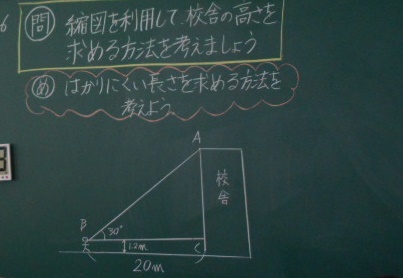 6
問 縮図を利用して、校舎の高さを
求める方法を考えましょう
め はかりにくい長さを求める方法を
考えよう
A
校舎
B
30°
1.2m
C
20m